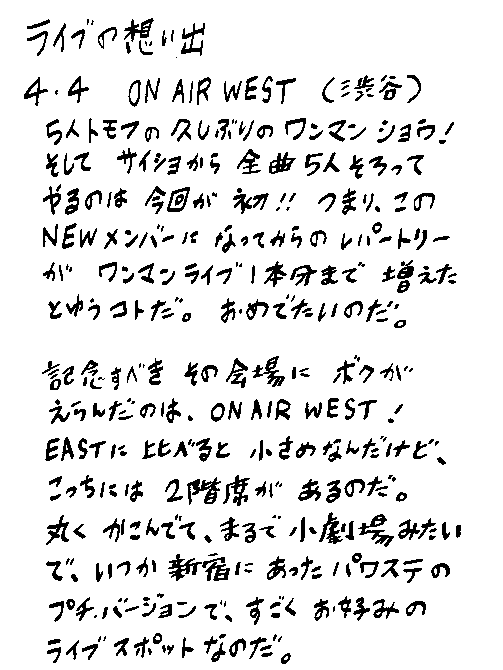 ライブの想い出
4.4 ON AIR WEST (渋谷)
5人トモフの久しぶりのワンマンショウ!
そして サイショから 全曲5人そろって
やるのは 今回が 初!! つまり、この
NEWメンバーに なってからの レパートリー
が ワンマンライブ1本分まで 増えた
とゆうコトだ。 おめでたいのだ。
記念すべき その会場に ボクが
えらんだのは、ON AIR WEST!
EASTに 比べると 小さめなんだけど、
こっちには 2階席が あるのだ。
丸く かこんでて、まるで 小劇場みたい
で、いつか 新宿に あった パワステの
プチ.バージョンで、すごく お好みの
ライブスポットなのだ。